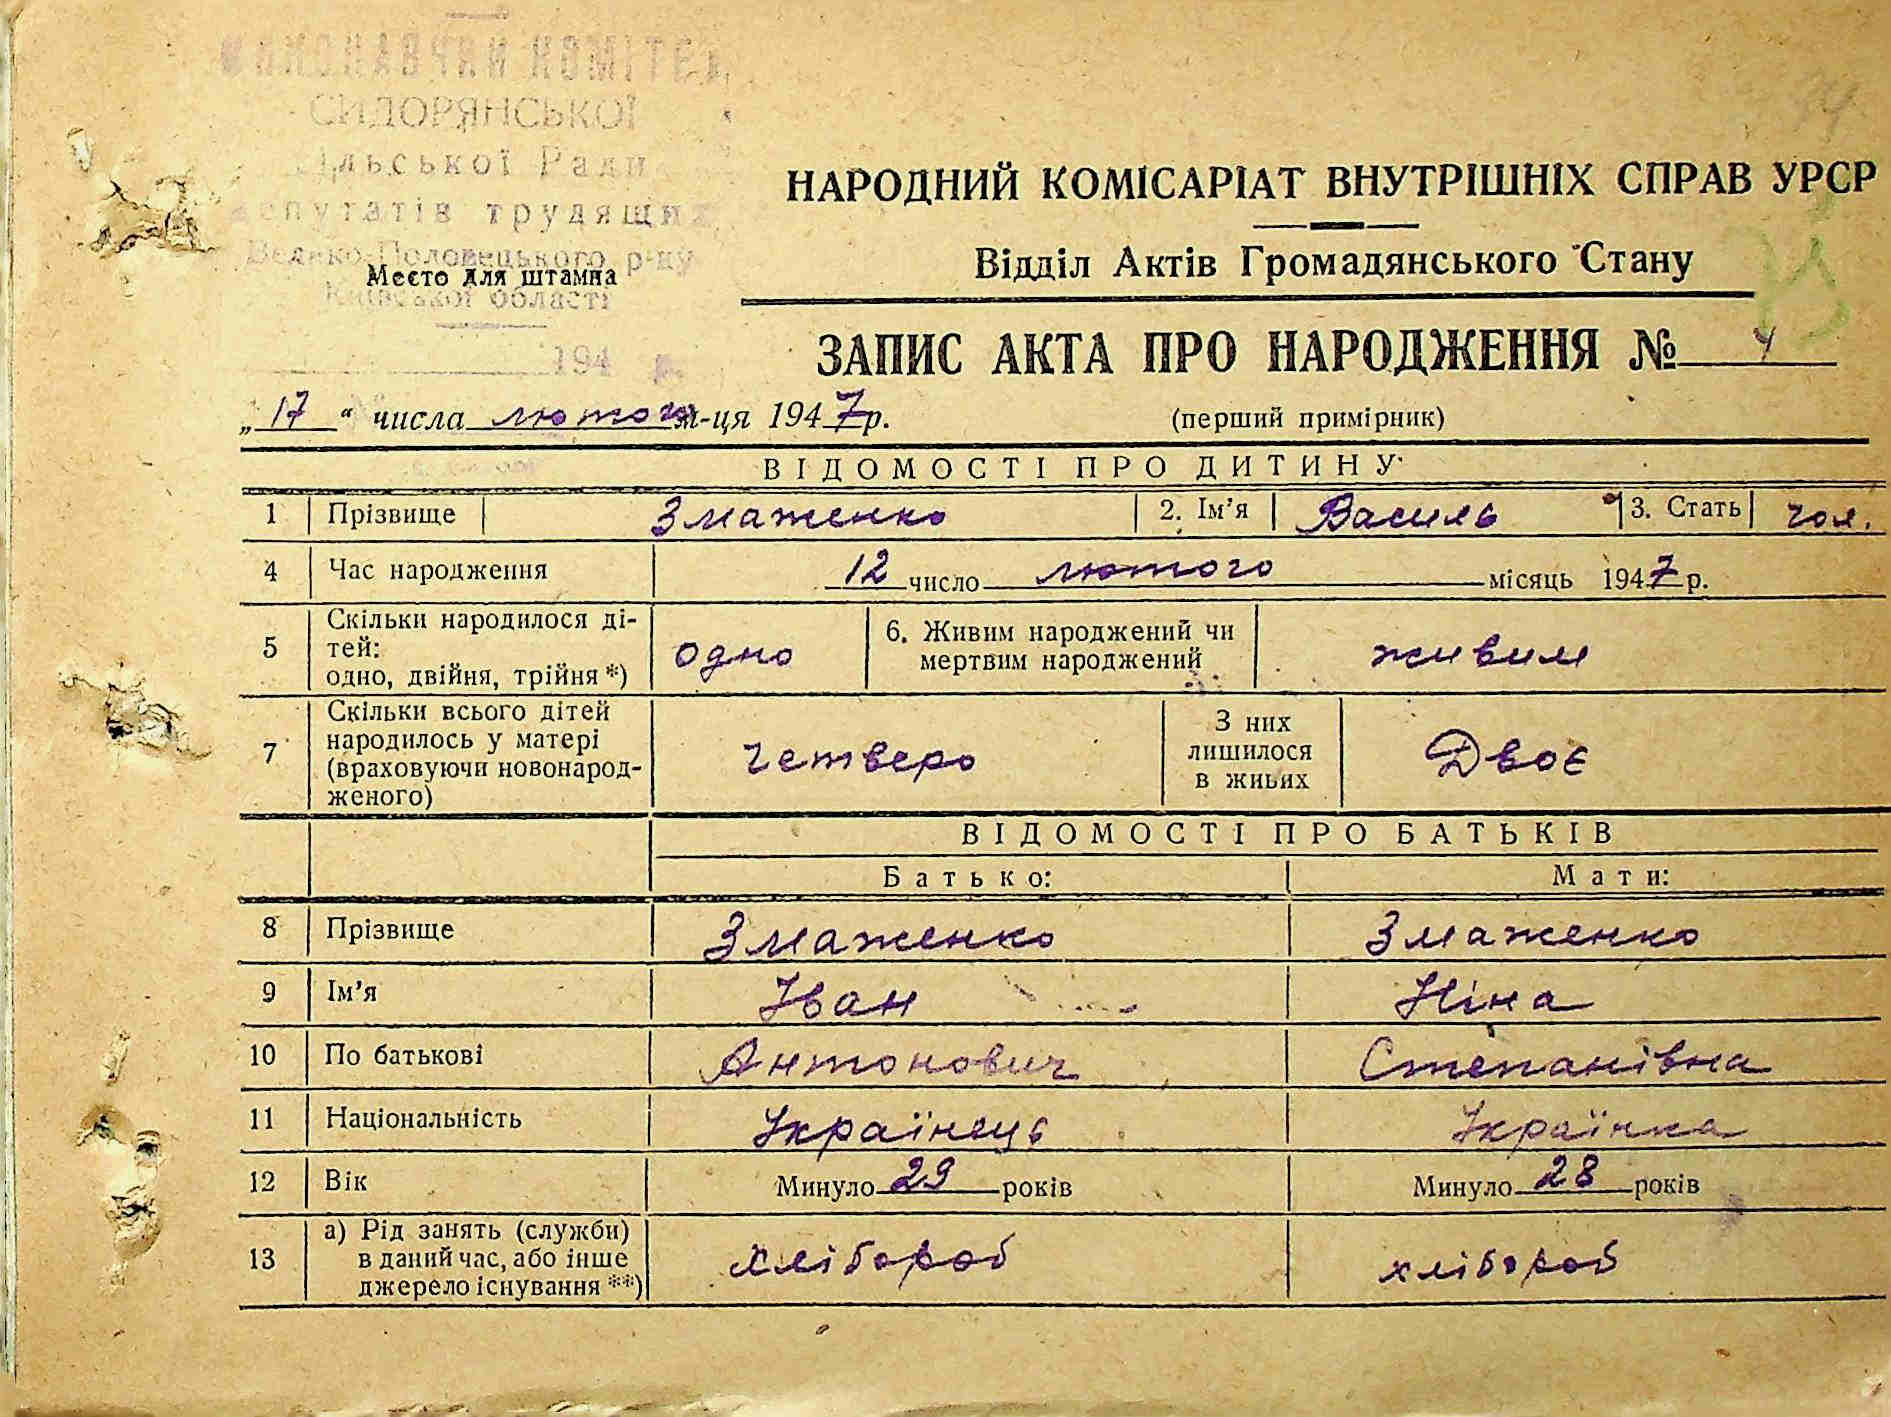 ВИКОНАВЧИЙ КОМІТЕТ
СИДОРЯНСЬКОЇ
сільської Ради
депутатів трудящих
Велико-Половецького р-ну
Київської області
Место для штампа
194 р.
НАРОДНИЙ КОМІСАРІАТ ВНУТРІШНІХ СПРАВ УРСР
Відділ Актів Громадянського Стану
ЗАПИС АКТА ПРО НАРОДЖЕННЯ № 4
„17“ числа лютого м-ця 1947 р. (перший примірник)
ВІДОМОСТІ ПРО ДИТИНУ
1 Прізвище Змаженко 2. Ім’я Василь 3. Стать чол.
4 Час народження 12 число лютого місяць 1947 р.
5 Скільки народилося ді-
тей:
одно, двійня, трійня *) одно 6. Живим народжений чи
мертвим народжений живим
7 Скільки всього дітей
народилось у матері
(враховуючи новонарод-
женого) четверо З них
лишилося
в живих Двоє
ВІДОМОСТІ ПРО БАТЬКІВ
Батько: Мати:
8 Прізвище Змаженко Змаженко
9 Ім’я Іван Ніна
10 По батькові Антонович Степанівна
11 Національність Українець Українка
12 Вік Минуло 29 років Минуло 28 років
13 а) Рід занять (служби)
в даний час, або інше
джерело існування **) хлібороб хлібороб